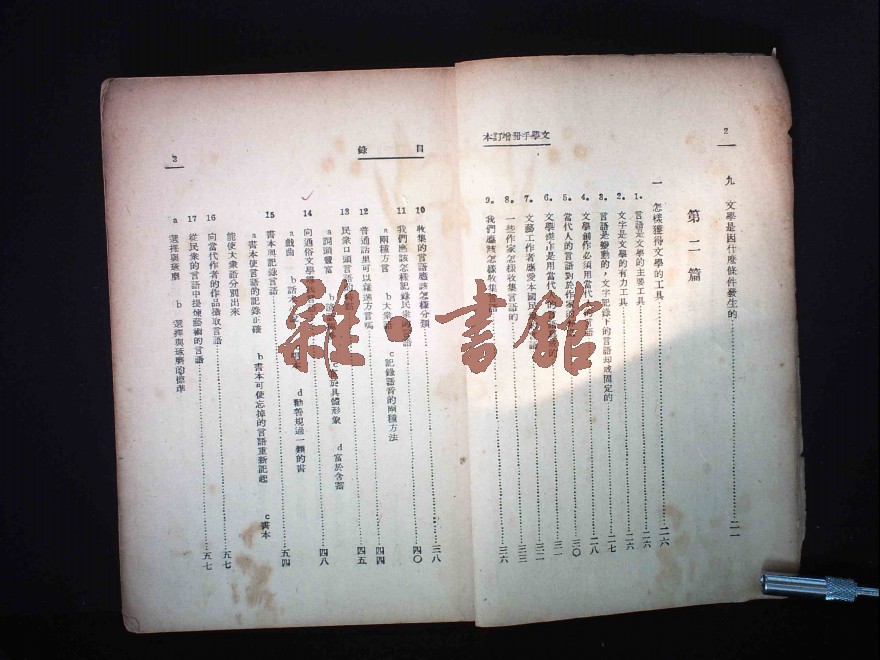 2
文學手冊增訂本
九 文學是因什麼條件發生的……二一
第二篇
一 怎樣獲得文學的工具……二六
1. 言語是文學的主要工具……二六
2. 文字是文學的有力工具……二六
3. 言語是變動的，文字記錄下的言語却成固定的……二七
4. 文學創作必須用當代人的言語……二八
5. 當代人的言語對於作家……三〇
6. 文學創作是用當代……三一
7. 文藝工作者應愛本國民……三二
8. 一些作家怎樣收集言語的……三三
9. 我們應該怎樣收集言語……三六
目錄
3
10 收集的言語應該怎樣分類……三八
11 我們應該怎樣記錄民衆的言語……四〇
a 兩種方言 b 大衆語 c 記錄語音的兩種方法……四四
12 普通話里可以雜進方言嗎……四五
13 民衆口頭言語的
a 詞頭豐富 c 富於具體形象 d 富於含蓄
14 向通俗文學……四八
a 戲曲 b 話本 d 勸善規過一類的書
15 書本與記錄言語……五四
a 書本使言語的記錄正確 b 書本可使忘掉的言語重新記起 c 書本
能使大衆語分別出來
16 向當代作者的作品攝取言語……五七
17 從民衆的言語中提煉藝術的言語……五七
a 選擇與琢磨 b 選擇與琢磨的標準
雜·書館